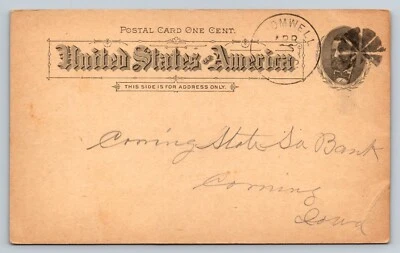 POSTAL CARD ONE CENT.
United States of America
THIS SIDE IS FOR ADDRESS ONLY.
OMWELL
APR
Corning State Sa Bank
Corning
Iowa